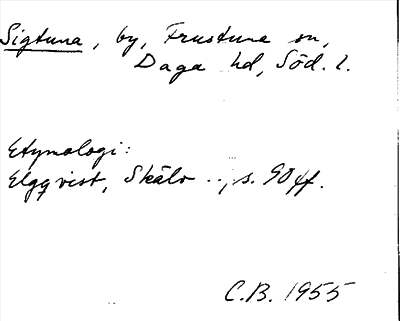 Sigtuna, by, Frustuna sn,
Daga hd, Söd. l.
Etymologi:
Elgqvist, Skälv .., s. 90 ff.
C.B. 1955